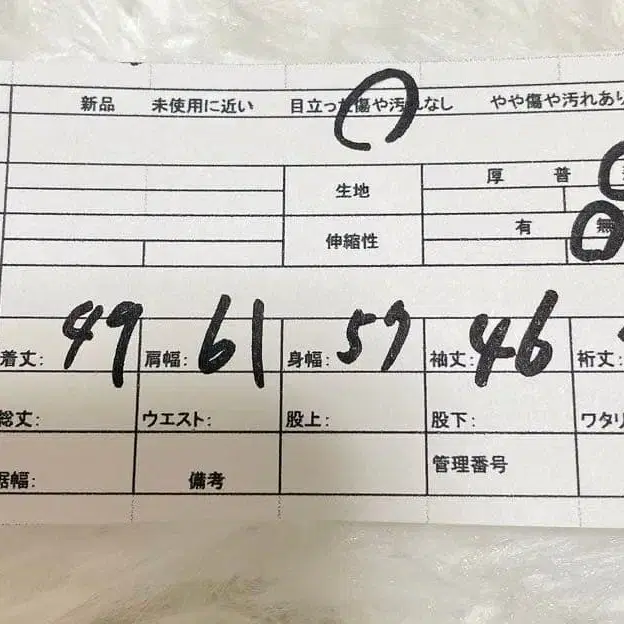 新品 未使用に近い 目立った傷や汚れなし やや傷や汚れあり
生地 厚 普
伸縮性 有 無
着丈: 49 肩幅: 61 身幅: 57 袖丈: 46 裄丈:
総丈: ウエスト: 股上: 股下: ワタリ
裾幅: 備考 管理番号